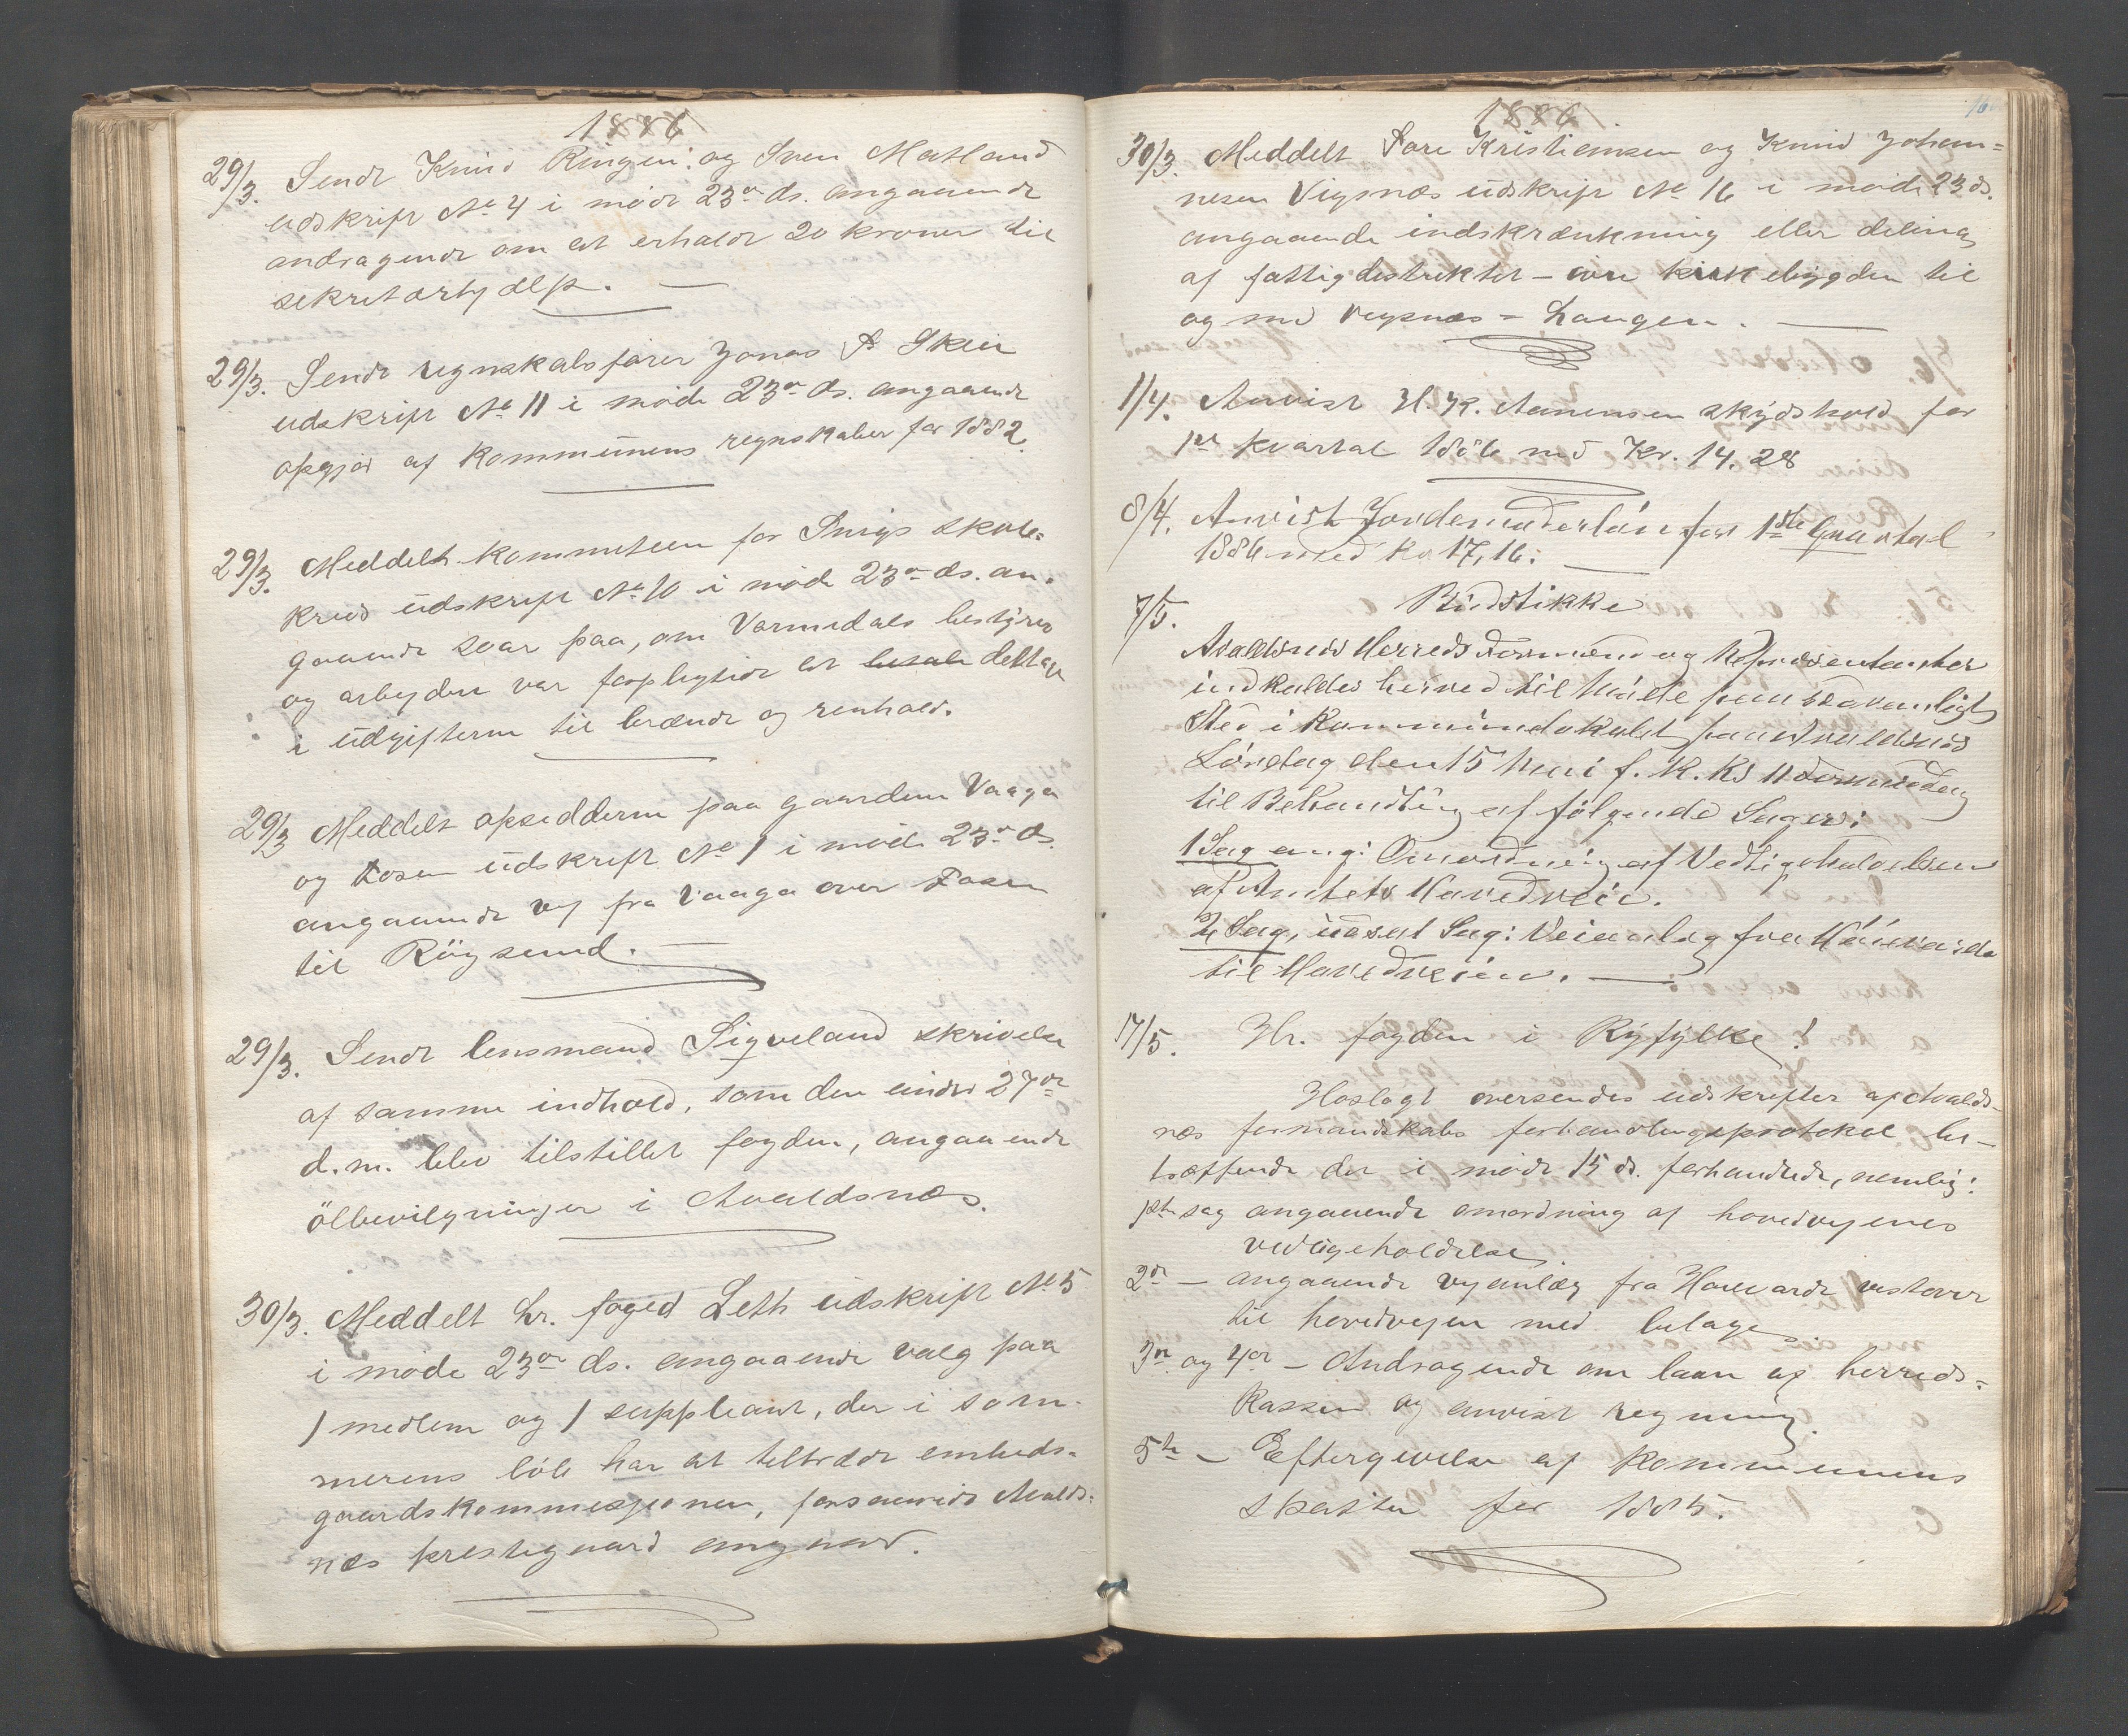 1886
29/3. Sendt Knud Ringen og Sven Matland
udskrift No 4 i møde 23de ds. angaaende
andragende om at erholde 20 kroner til
sekretærhjælp. —
29/3. Sendt regnskabsfører Jonas A Skeie
udskrift No 11 i møde 23de ds. angaaende
opgjør af kommunens regnskaber for 1882.
29/3. Meddelt kommiteen for Snigs skole-
kreds udskrift No 10 i møde 23de ds. an-
gaaende svar paa, om Vormedals bestyrer
og arbeydere var forpligtede at betale deltage
i udgifterne til brænde og renhold.
29/3 Meddelt opsidderne paa gaardene Vaaga
og Fosen udskrift No 1 i møde 23de ds.
angaaende vej fra Vaaga over Fosen
til Røgsund. —
29/3. Sendt lensmand Sigveland skrivelse
af samme indhold, som den under 27de
d.m. blev tilstillet fogden, angaaende
ølbevilgninger i Avaldsnæs.
30/3. Meddelt hr. foged Leth udskrift No 5
i møde 23de ds. angaaende valg paa
1 medlem og 1 suppleant, der i som-
merens løb har at tiltræde embeds-
gaardskommissionen, forsaavidt Avalds-
næs prestegaard angaar.
1886
30/3. Meddelt Tore Kristiansen og Knud Johan-
nesen Vigsnæs udskrift No 16 i møde 23 ds.
angaaende indskrænkning eller deling
af fattigdistriktet – øvre kirkebygden til
og med Vigsnæs = Langen. —
1/4. Anvist H. K. Aanensen skydshold for
1ste kvartal 1886 med Kr. 14.28
8/4. Anvist Jordemoderløn for 1ste Qvartal
1886 med kr 17,16. —
7/5. Budstikke
Avaldsnes Herreds Formænd og Repræsentanter
indkaldes herved til Møde paa sædvanligt
Sted i Kommunelokalet paa Avaldsnes
Lørdag den 15 Mai f. K. Kl 11 Formiddag
til Behandling af følgende Sager:
1 Sag ang: Omordning af Vedligeholdelsen
af Amtets Hovedveie.
2 Sag, udsat Sag: Veianlæg fra Håvarde
til Hovedveien. —
17/5. Hr. fogden i Ryfylke!
Hoslagt oversendes udskrifter af Avalds-
næs formandskabs forhandlingsprotokol be-
træffende de i møde 15 ds. forhandlede, nemlig:
1ste sag angaaende omordning af hovedvejenes
vedligeholdelse
2de — angaaende vejanlæg fra Havearde vestover
til hovedvejen med bilage
3de og 4de — Andragende om laan af herreds-
kassen og anvist regning.
5te — Eftergivelse af kommunens
skatter for 1885.